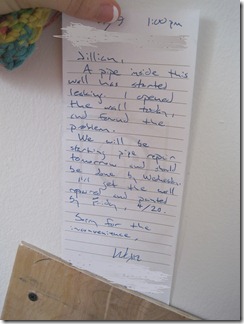 1:00pm
Jillian,
A pipe inside this
wall has started
leaking. I opened
the wall today,
and found the
problem.
We will be
starting pipe repair
tomorrow and should
be done by Wednesday.
I'll get the wall
repaired and painted
by Friday, 4/20.
Sorry for the
inconvenience.